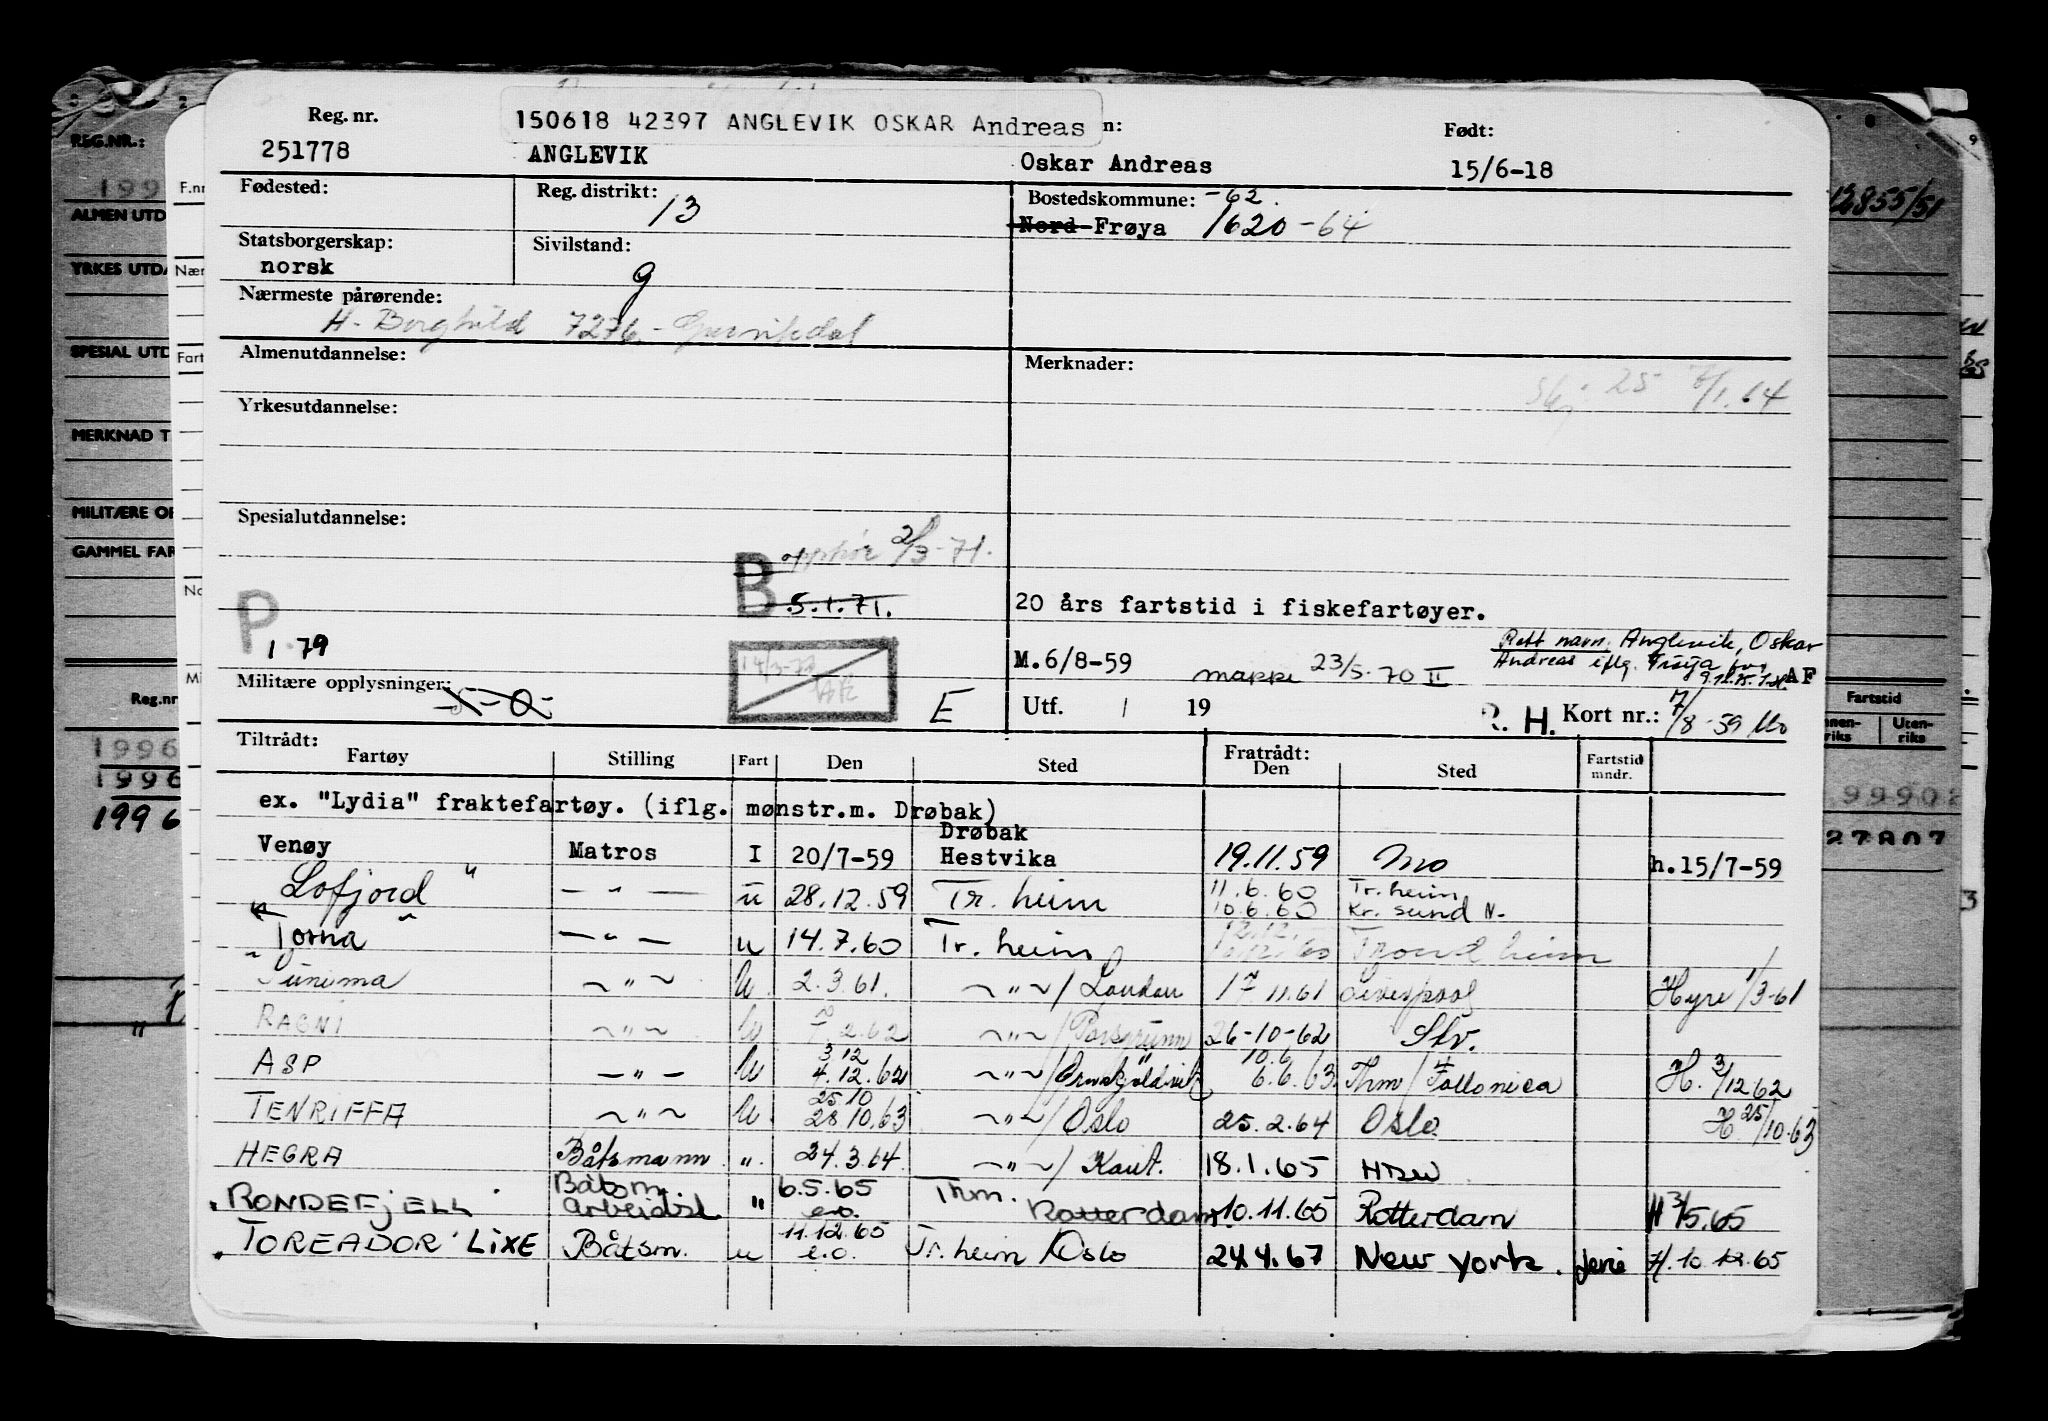 Reg. nr. 150618 42397 ANGLEVIK OSKAR Andreas n: Født:
251778 ANGLEVIK Oskar Andreas 15/6-18
Fødested: Reg. distrikt: 13 Bostedskommune: -62.
Nord-Frøya 1620-64
Statsborgerskap: Sivilstand:
norsk g
Nærmeste pårørende:
H- Borghild 7276
Almenutdannelse: Merknader:
25 7/1.64
Yrkesutdannelse:
Spesialutdannelse:
B opphør 2/3-71.
5.1.71.
20 års fartstid i fiskefartøyer.
P 1.79
Rett navn: Anglevik, Oskar
Andreas iflg. Frøya
M.6/8-59 mappe 23/5-70 II AF
Militære opplysninger: E Utf. / 19 R. H. Kort nr.: 7/8-59
Tiltrådt: Fratrådt:
Fartøy Stilling Fart Den Sted Den Sted Fartstid mndr.
ex. "Lydia" fraktefartøy. (iflg. mønstr.m. Drøbak)
Drøbak
Venøy Matros I 20/7-59 Hestvika 19.11.59 Mo h.15/7-59
Lofjord " — " — u 28.12.59 Tr. heim 11.6.60 Tr. heim
10.6.60 Kr. sund N-
Torna — " — u 14.7.60 Tr. heim 12.12.60 Trondheim
Sunima ~ " ~ U 2.3.61. ~ " ~ / London 17.11.61 Liverpool Hyre 1/3-61
RAGNI ~ " ~ U 2.62 ~ " ~ / Porsgrunn 26-10-62 Stv.
ASP — " — U 3.12 4.12.62 ~ " ~ / Ørnskjöldvik 10.6 6.6.63. Thm / Follonica H. 3/12 62
TENRIFFA ~ " ~ U 25.10 28.10.63 ~ " ~ / Oslo 25.2.64 Oslo H 25/10.63
HEGRA Båtsmann " 24.3.64 ~ " ~ / Kaut. 18.1.65
RONDEFJELL Båtsm. arbeidsl " 6.5.65 e.o. Thm. Rotterdam 10.11.65 Rotterdam H 3/5.65
TOREADOR LIXE Båtsm. u 11.12.65 e.o. Tr. heim / Oslo 24.4.67 New York. H. 10.12.65
REG.NR.:
199
ALMEN UTD
YRKES UTDA
SPESIAL UTD
MERKNAD T
MILITÆRE OP
GAMMEL FAR
Reg.nr
1996
1996
1996
F.nr
Nær
Fart
12855/51
Fartstid
nnen-riks Uten-riks
99902
27807